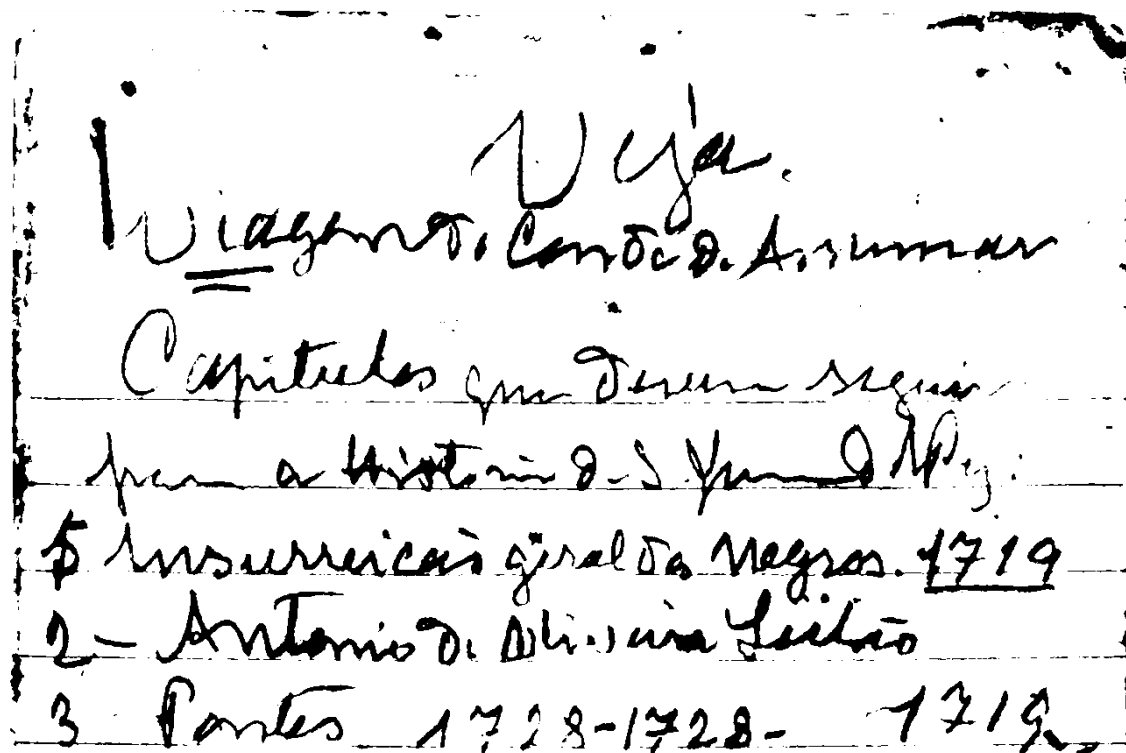 Veja.
Viagem do Conde de Assumar
Capitulos que devem seguir
para a Historia de S. d'El Rey:
1 Insurreicão geral dos Negros. 1719
2 - Antonio de Oliveira Leitão
3 Pontes 1728-1728- 1719